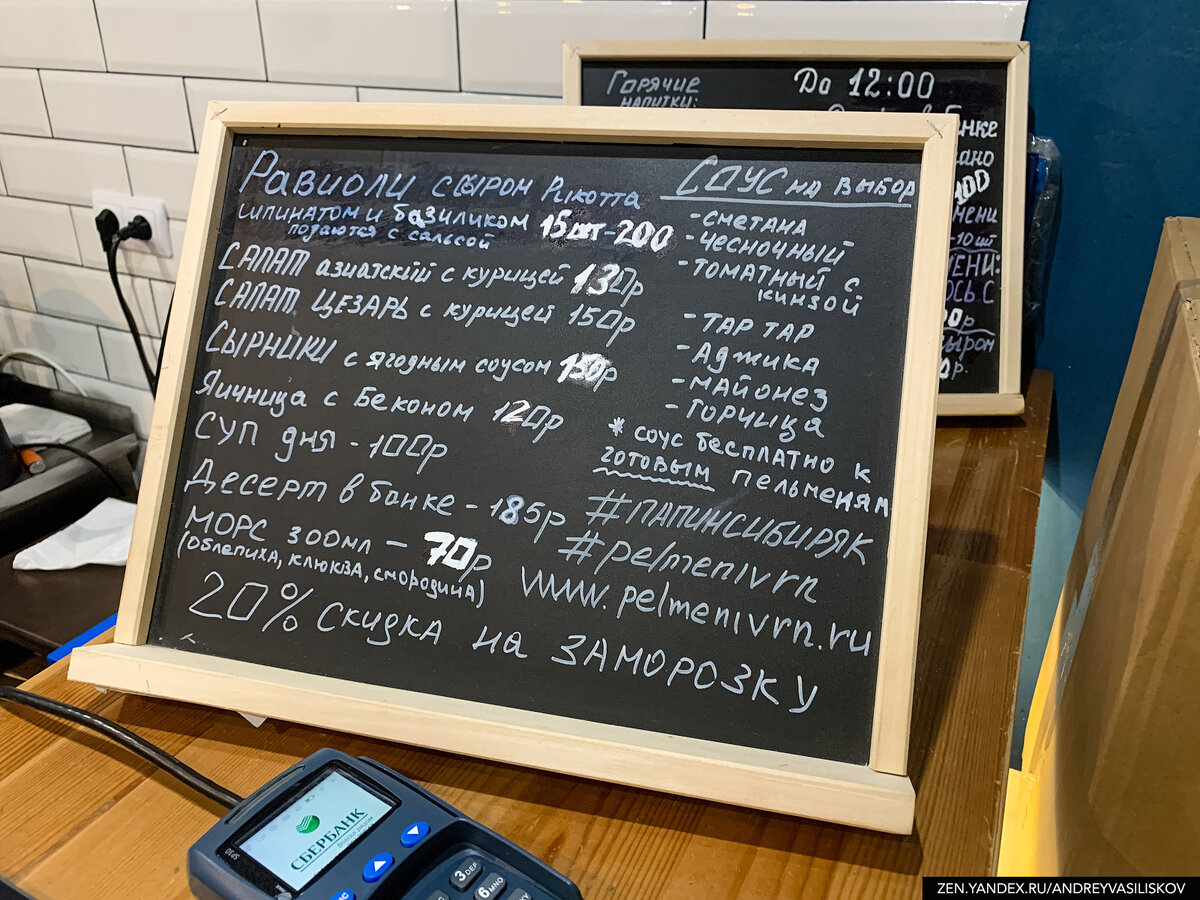 Равиоли с сыром Рикотта
шпинатом и базиликом 15шт-200
подаются с сальсой
Салат азиатский с курицей 130р
Салат Цезарь с курицей 150р
Сырники с ягодным соусом 130р
Яичница с Беконом 120р
Суп дня - 100р
Десерт в банке - 185р
Морс 300мл - 70р
(облепиха, клюква, смородина)
20% скидка на заморозку
Соус на выбор
- сметана
- чесночный
- томатный с
кинзой
- тар тар
- Аджика
- майонез
- горчица
* соус бесплатно к
готовым пельменям
#папинсибиряк
#pelmenivrn
www.pelmenivrn.ru
Горячие
напитки:
До 12:00
- 10 шт
СБЕРБАНК
3 DEF
6 MNO
ZEN.YANDEX.RU/ANDREYVASILISKOV